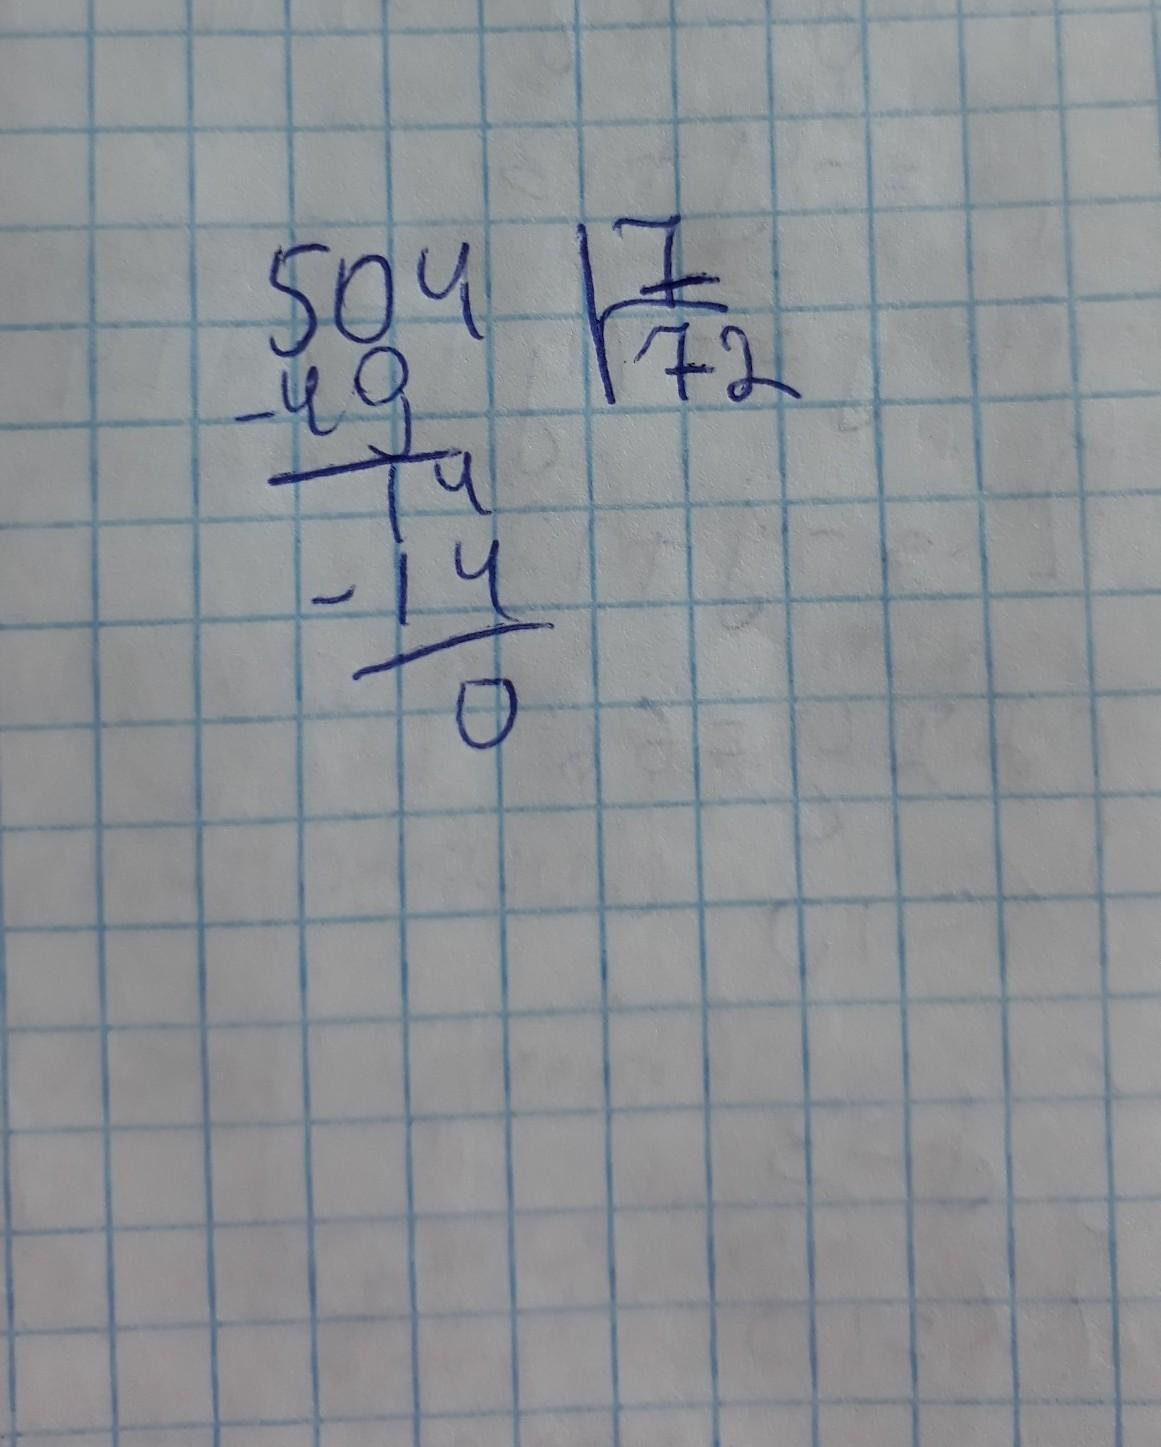 504 7
-49 72
14
-14
0